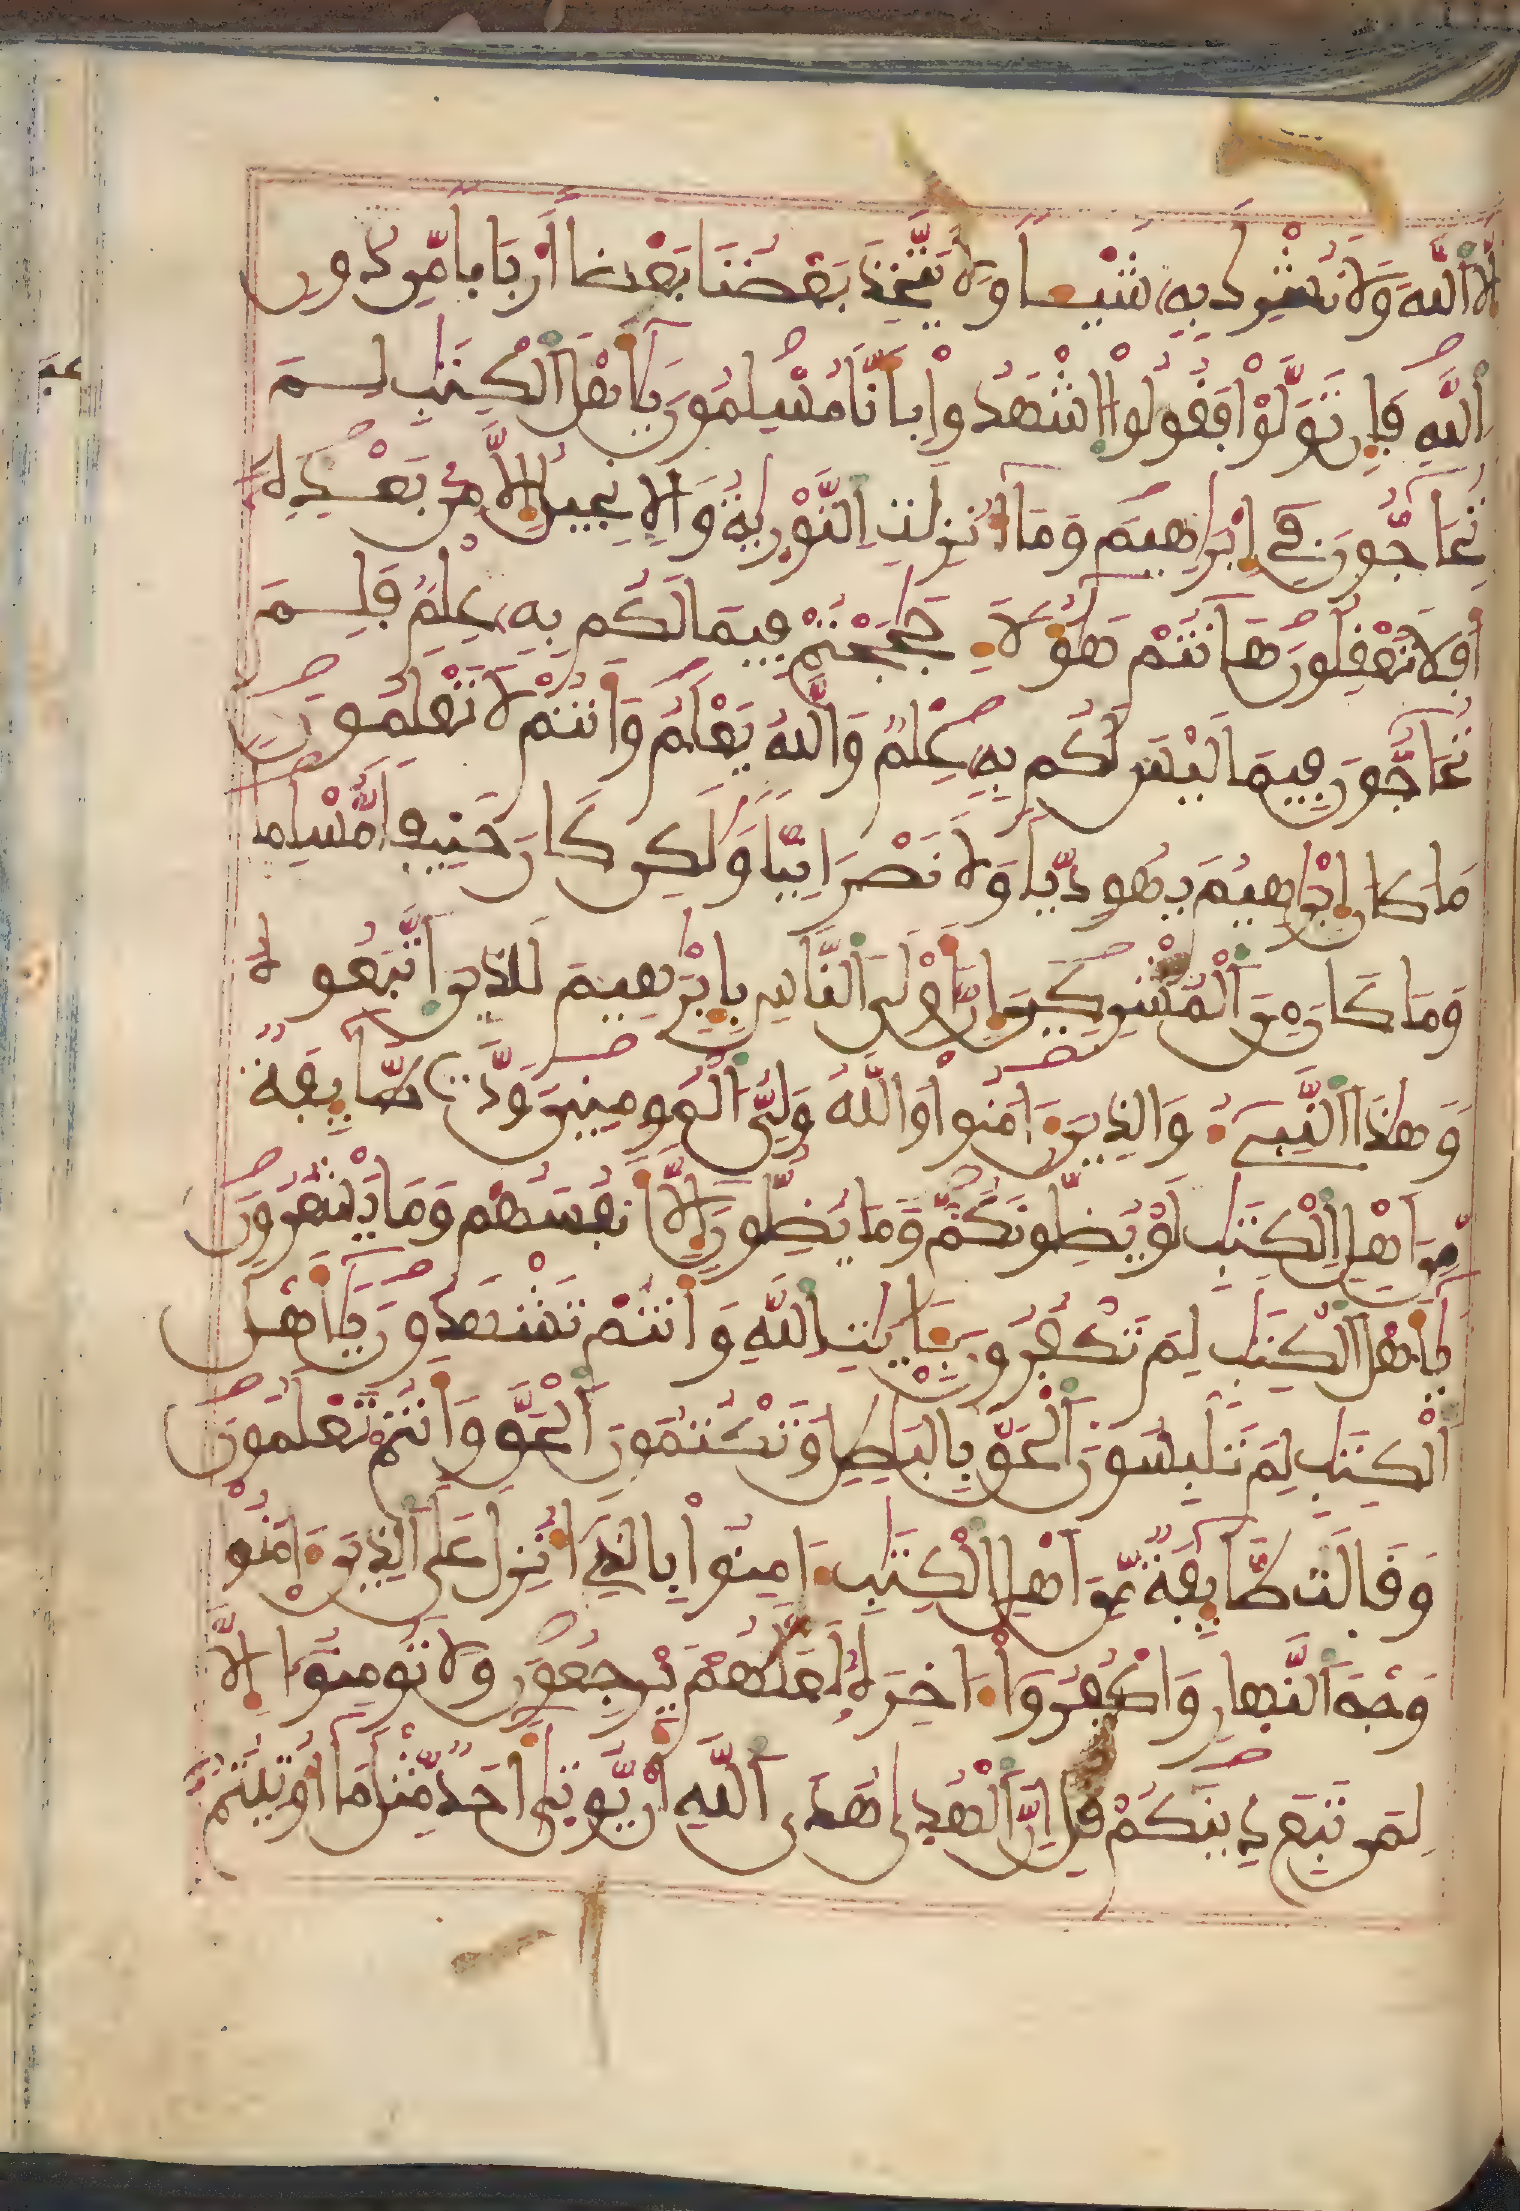 إلا اللَّهَ وَلَا نُشْرِكَ بِهِ شَيْـًٔا وَلَا يَتَّخِذَ بَعْضُنَا بَعْضًا أَرْبَابًا مِّن دُونِ
اِللَّهِ فَإِن تَوَلَّوْا فَقُولُوا اُشْهَدُوا بِأَنَّا مُسْلِمُونَ يَٰأَهْلَ اَلْكِتَٰبِ لِمَ
تُحَاجُّونَ فِي إِبْرَٰهِيمَ وَمَا أُنزِلَتِ اِلتَّوْرَيٰةُ وَالْإِنجِيلُ إِلَّا مِنۢ بَعْدِهِ
أَفَلَا تَعْقِلُونَ هَٰأَنتُمْ هَٰؤُلَاءِ حَٰجَجْتُمْ فِيمَا لَكُم بِهِ عِلْمٌ فَلِمَ
تُحَاجُّونَ فِيمَا لَيْسَ لَكُم بِهِ عِلْمٌ وَاللَّهُ يَعْلَمُ وَأَنتُمْ لَا تَعْلَمُونَ
مَا كَانَ إِبْرَٰهِيمُ يَهُودِيًّا وَلَا نَصْرَانِيًّا وَلَٰكِن كَانَ حَنِيفًا مُّسْلِمًا
وَمَا كَانَ مِنَ اَلْمُشْرِكِينَ إِنَّ أَوْلَى اَلنَّاسِ بِإِبْرَٰهِيمَ لَلَّذِينَ اَتَّبَعُوهُ
وَهَٰذَا اَلنَّبِيءُ وَالَّذِينَ ءَامَنُوا وَاللَّهُ وَلِيُّ اُلْمُومِنِينَ وَدَّت طَّائِفَةٌ
مِّنَ اَهْلِ اِلْكِتَٰبِ لَوْ يُضِلُّونَكُمْ وَمَا يُضِلُّونَ إِلَّا أَنفُسَهُمْ وَمَا يَشْعُرُونَ
يَٰأَهْلَ اَلْكِتَٰبِ لِمَ تَكْفُرُونَ بِـَٔايَٰتِ اِللَّهِ وَأَنتُمْ تَشْهَدُونَ يَٰأَهْلَ
اَلْكِتَٰبِ لِمَ تَلْبِسُونَ اَلْحَقَّ بِالْبَٰطِلِ وَتَكْتُمُونَ اَلْحَقَّ وَأَنتُمْ تَعْلَمُونَ
وَقَالَت طَّائِفَةٌ مِّنَ اَهْلِ اِلْكِتَٰبِ ءَامِنُوا بِالَّذِي أُنزِلَ عَلَى اَلَّذِينَ ءَامَنُوا
وَجْهَ اَلنَّهَارِ وَاكْفُرُوا ءَاخِرَهُ لَعَلَّهُمْ يَرْجِعُونَ وَلَا تُومِنُوا إِلَّا
لِمَن تَبِعَ دِينَكُمْ قُلِ اِنَّ اَلْهُدَىٰ هُدَى اَللَّهِ أَن يُّوتَىٰ أَحَدٌ مِّثْلَ مَا أُوتِيتُمْ